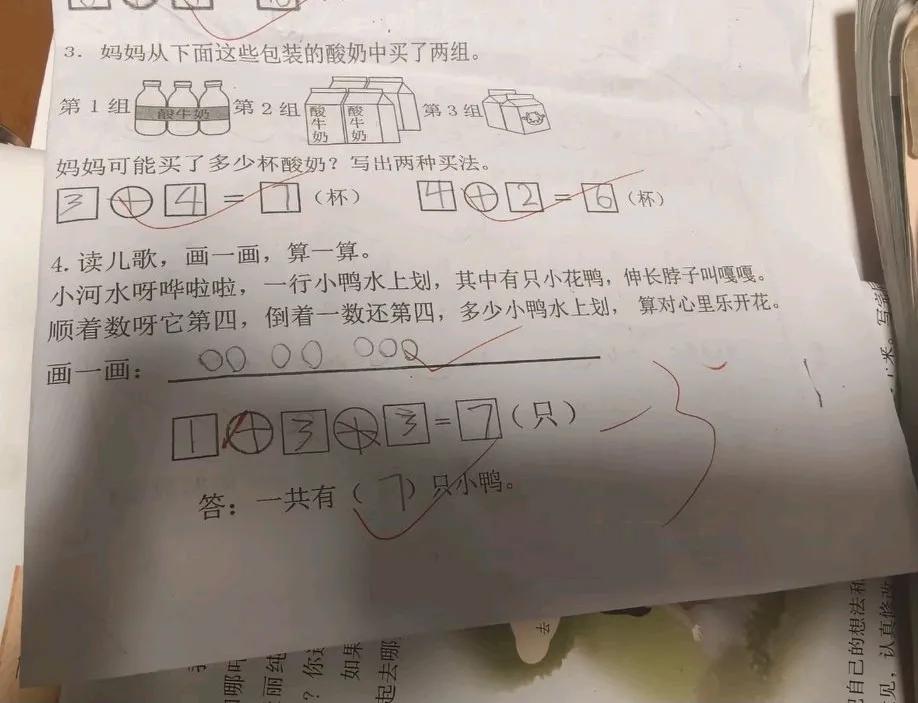 3. 妈妈从下面这些包装的酸奶中买了两组。
第1组 酸牛奶 第2组 酸牛奶 酸牛奶 第3组
妈妈可能买了多少杯酸奶？写出两种买法。
3+4=7（杯） 4+2=6（杯）
4. 读儿歌，画一画，算一算。
小河水呀哗啦啦，一行小鸭水上划，其中有只小花鸭，伸长脖子叫嘎嘎。
顺着数呀它第四，倒着一数还第四，多少小鸭水上划，算对心里乐开花。
画一画：
1+3+3=7（只）
答：一共有（7）只小鸭。
去
己的想法和
见，认真修改
如果
起去哪
？你